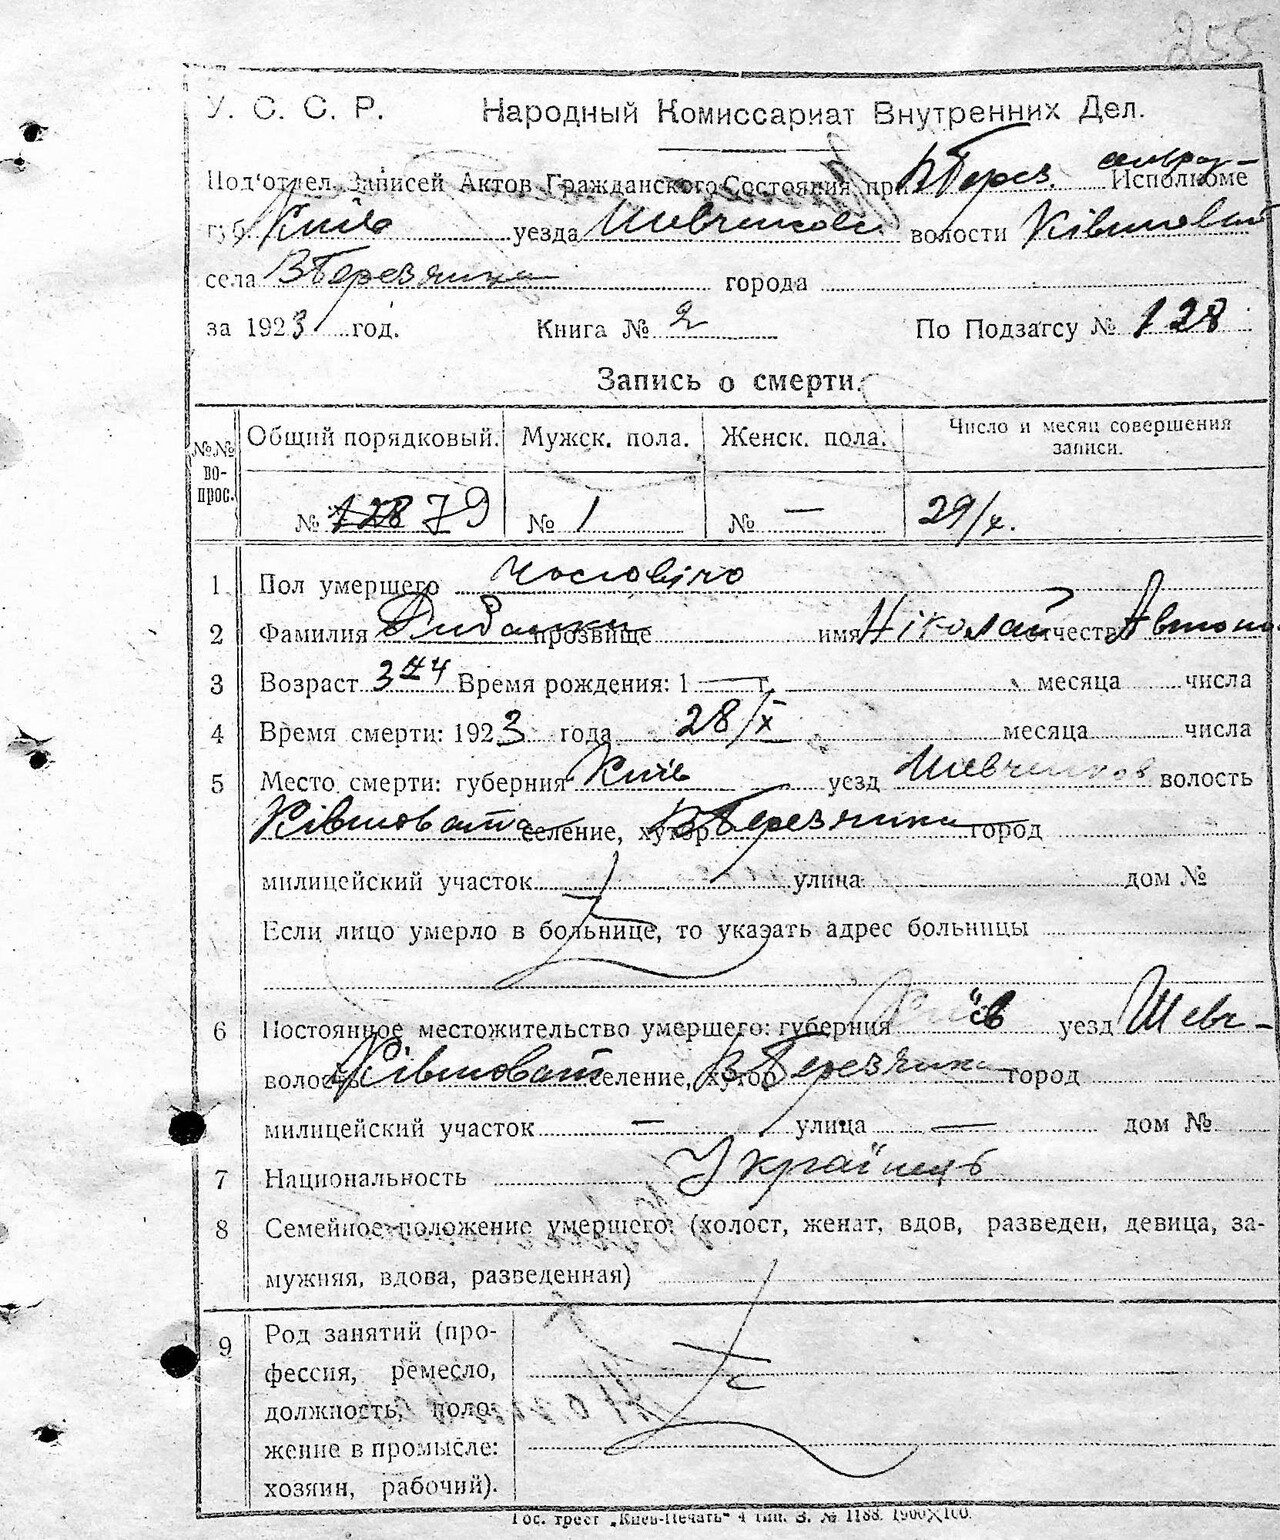 255
У. С. С. Р. Народный Комиссариат Внутренних Дел.
Под'отдел Записей Актов Гражданского Состояния при В Берез. Исполкоме
губ. Київ уезда Шевченков. волости Ківшоват
села В Березянка города
за 1923 год. Книга № 2 По Подзагсу № 128
Запись о смерти.
№№ во-прос. Общий порядковый. Мужск. пола. Женск. пола. Число и месяц совершения записи.
№ 128 79 № 1 № — 29/X.
1 Пол умершего Чоловічо
2 Фамилия прозвище имя Ніколай отчество Автоно
3 Возраст Время рождения: 1 — г. месяца числа
4 Время смерти: 1923 года 28/X месяца числа
5 Место смерти: губерния Київ уезд Шевченков волость
Ківшовата селение, хутор В Березянка город
милицейский участок улица дом №
Если лицо умерло в больнице, то указать адрес больницы
6 Постоянное местожительство умершего: губерния Київ уезд Шевч-
волость Ківшоват селение, хутор В Березянка город
милицейский участок — улица — дом №
7 Национальность Українець
8 Семейное положение умершего: (холост, женат, вдов, разведен, девица, за-
мужняя, вдова, разведенная)
9 Род занятий (про-
фессия, ремесло,
должность, поло-
жение в промысле:
хозяин, рабочий).
Гос. трест „Киев-Печать" 4 тип. З. № 1188. 1900X100.